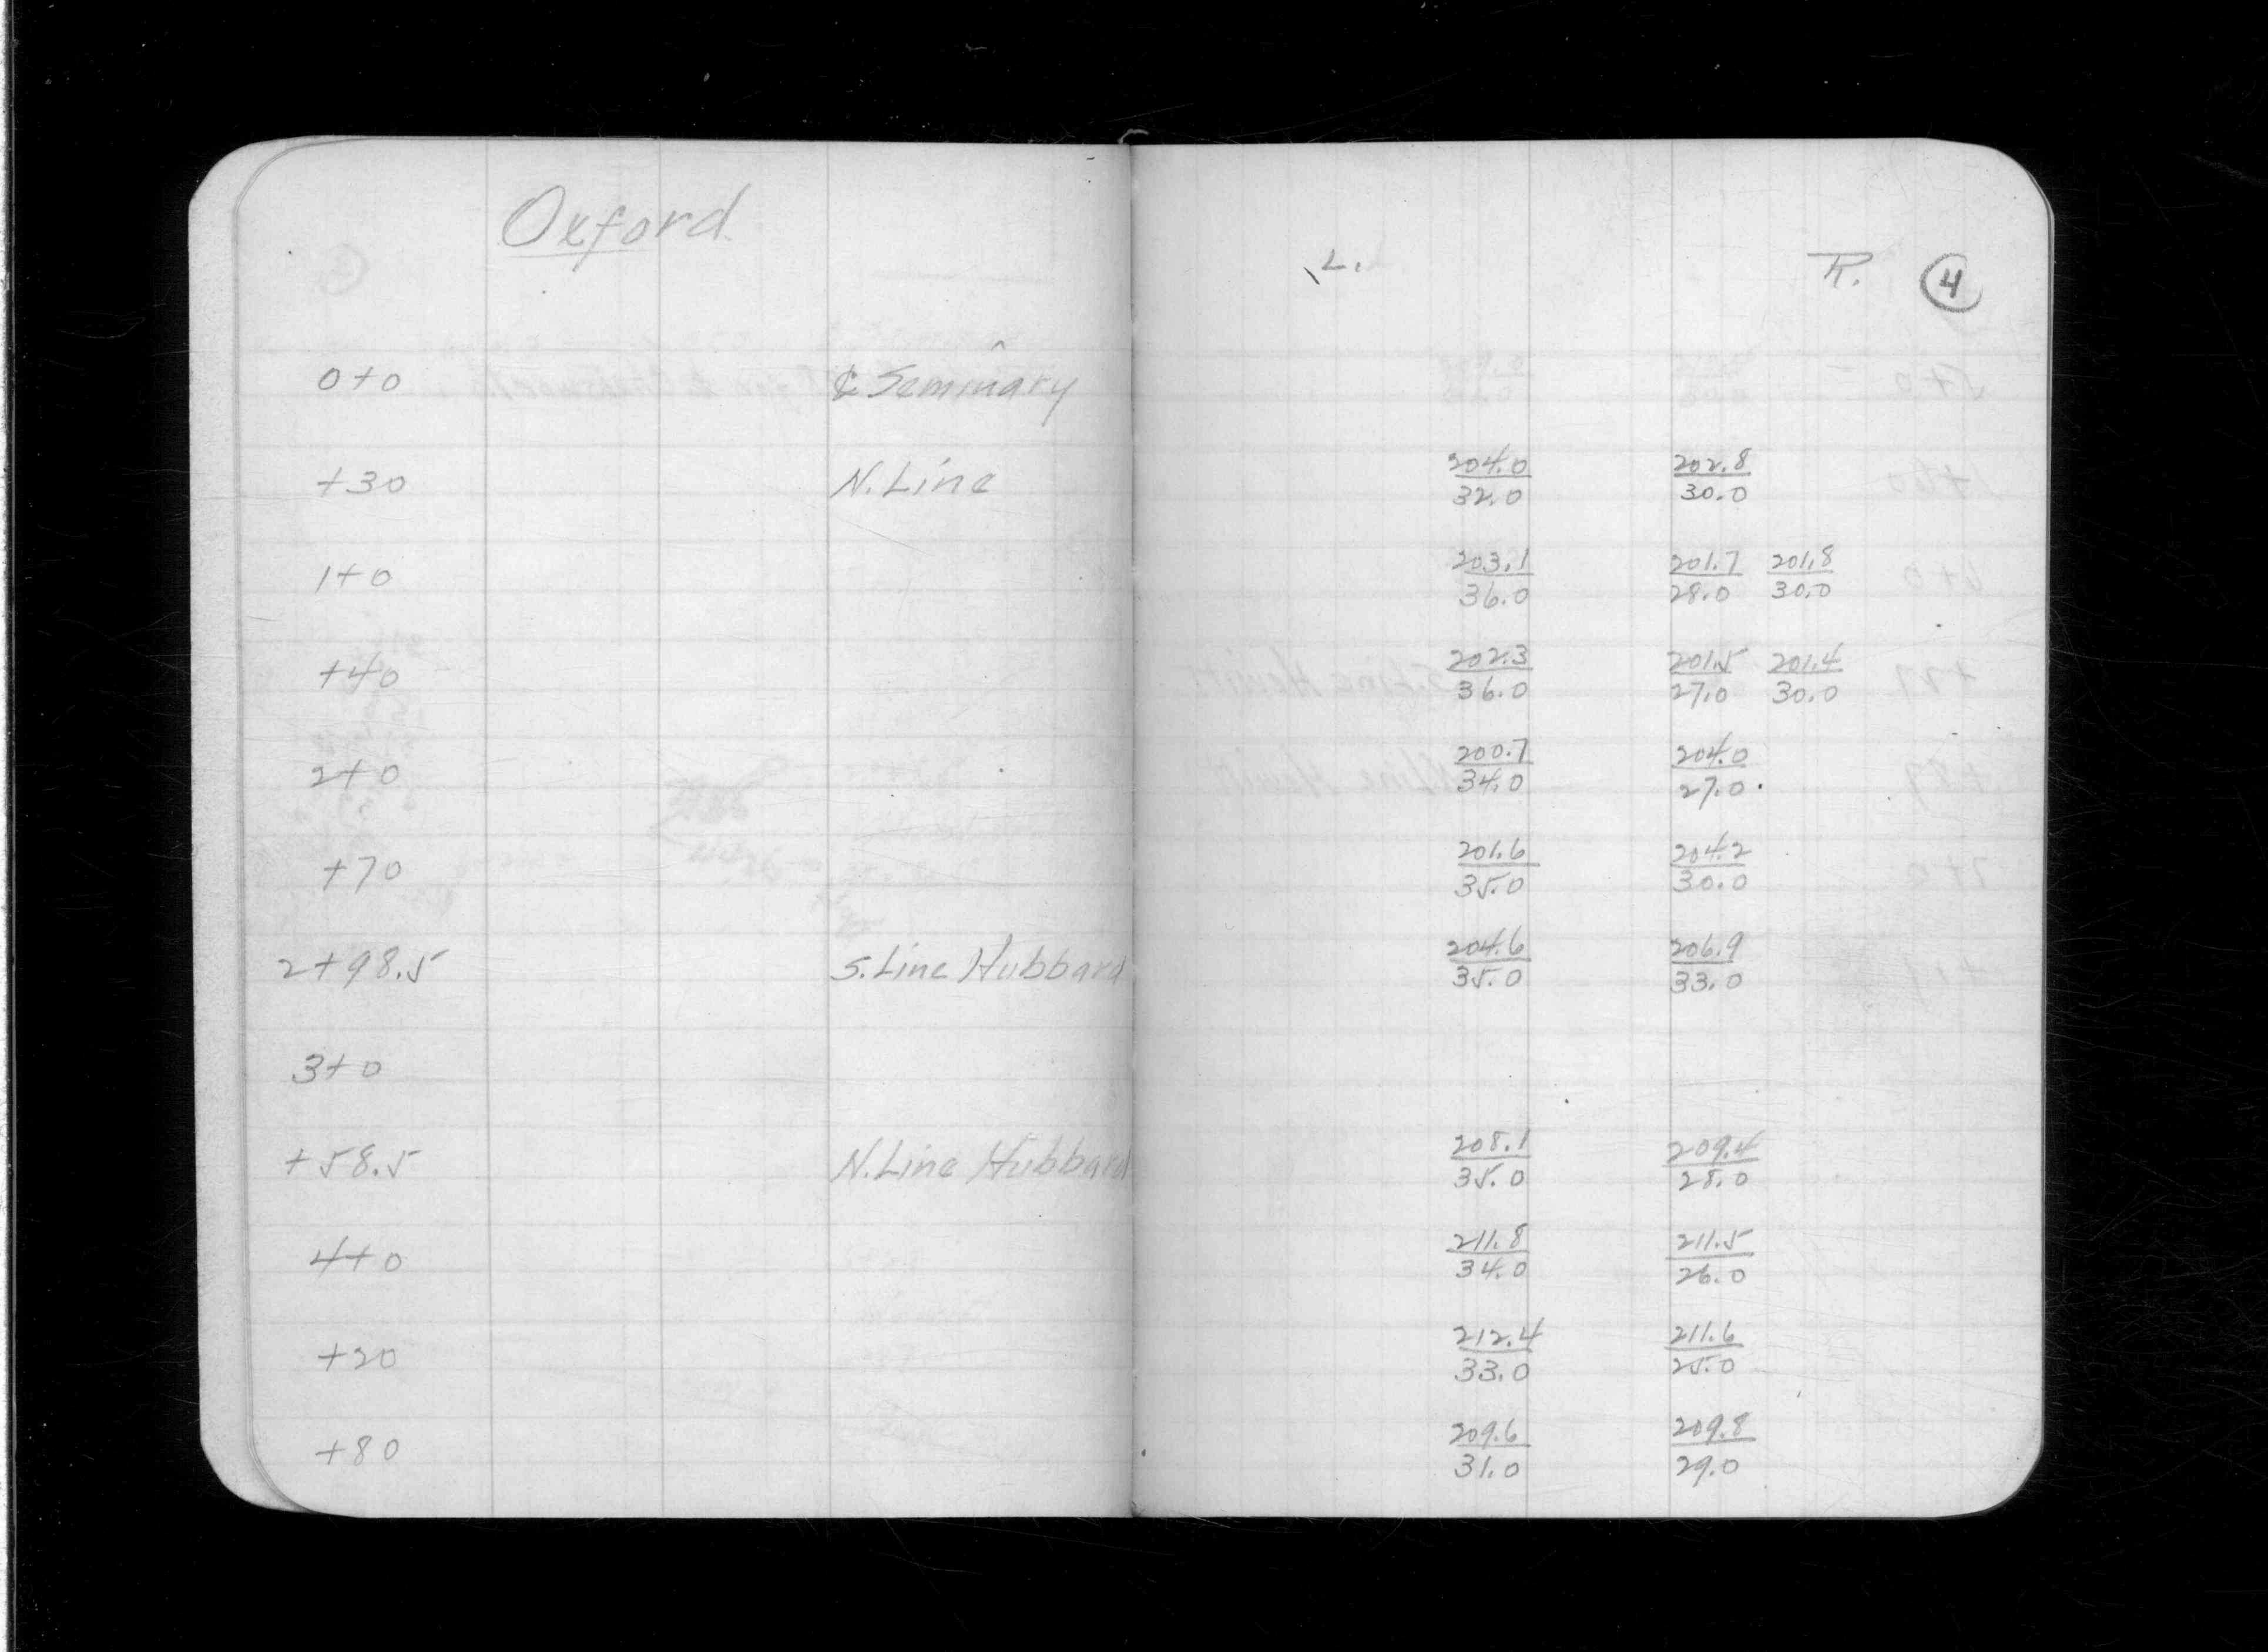 Oxford
L. R. 4
0+0 ℄ Seminary
+30 N. Line 204.0/32.0 202.8/30.0
1+0 203.1/36.0 201.7/28.0 201.8/30.0
+40 202.3/36.0 201.5/27.0 201.4/30.0
2+0 200.7/34.0 204.0/27.0
+70 201.6/35.0 204.2/30.0
2+98.5 S. Line Hubbard 204.6/35.0 206.9/33.0
3+0
+58.5 N. Line Hubbard 208.1/35.0 209.4/28.0
4+0 211.8/34.0 211.5/26.0
+20 212.4/33.0 211.6/25.0
+80 209.6/31.0 209.8/29.0